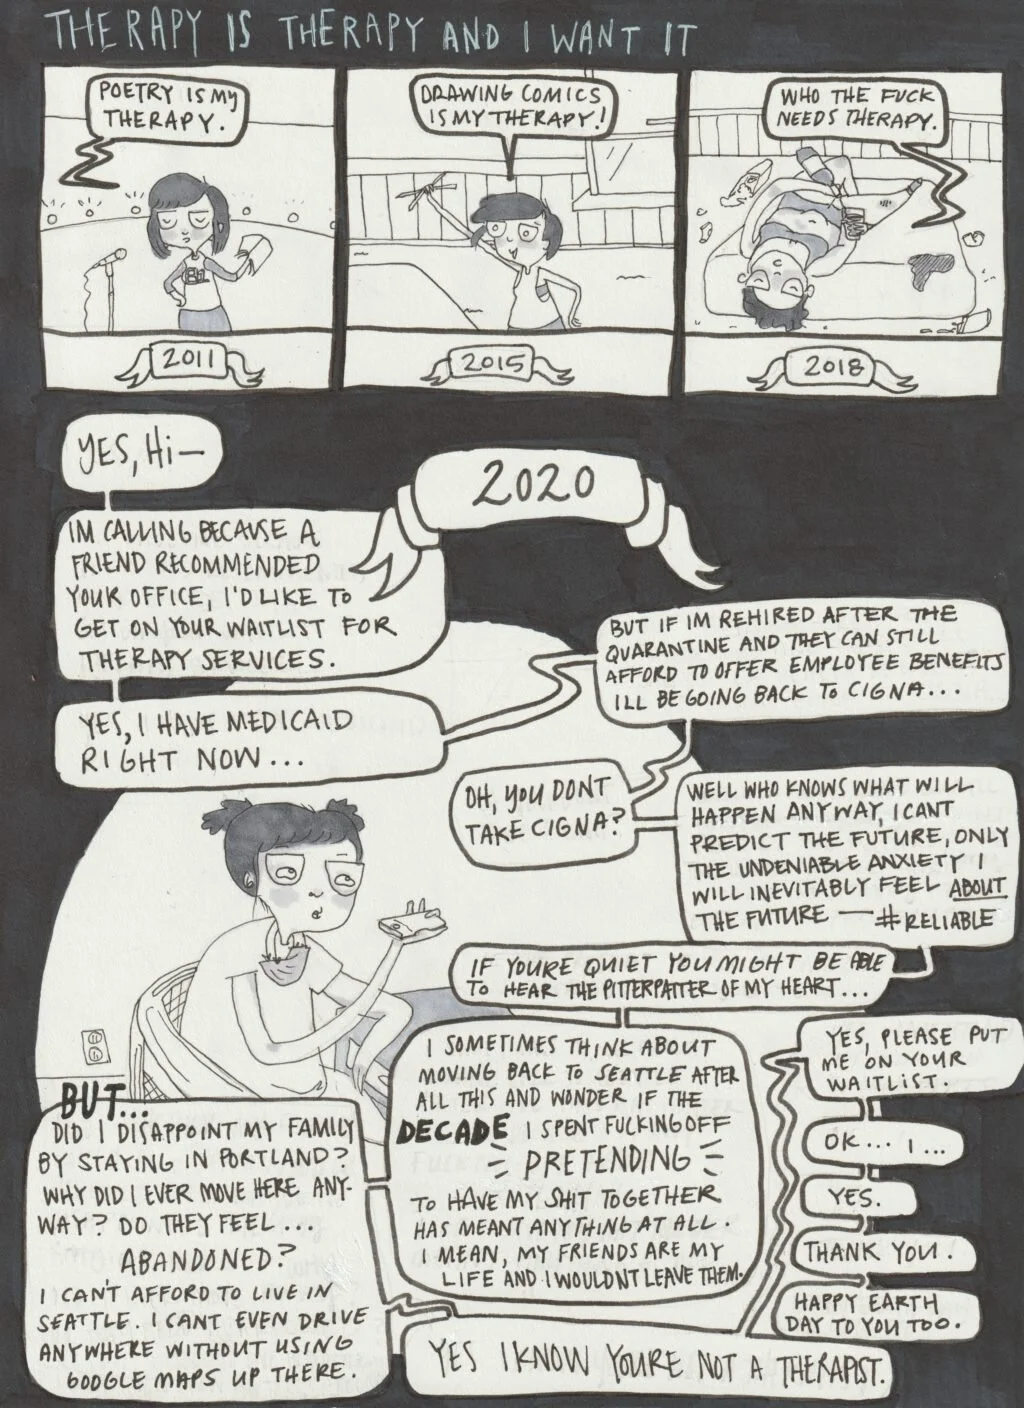 THERAPY IS THERAPY AND I WANT IT
POETRY IS MY
THERAPY.
2011
DRAWING COMICS
IS MY THERAPY!
2015
WHO THE FUCK
NEEDS THERAPY.
2018
2020
YES, HI—
IM CALLING BECAUSE A
FRIEND RECOMMENDED
YOUR OFFICE, I'D LIKE TO
GET ON YOUR WAITLIST FOR
THERAPY SERVICES.
YES, I HAVE MEDICAID
RIGHT NOW...
BUT IF IM REHIRED AFTER THE
QUARANTINE AND THEY CAN STILL
AFFORD TO OFFER EMPLOYEE BENEFITS
ILL BE GOING BACK TO CIGNA...
OH, YOU DONT
TAKE CIGNA?
WELL WHO KNOWS WHAT WILL
HAPPEN ANYWAY, I CANT
PREDICT THE FUTURE, ONLY
THE UNDENIABLE ANXIETY I
WILL INEVITABLY FEEL ABOUT
THE FUTURE — #RELIABLE
IF YOURE QUIET YOU MIGHT BE ABLE
TO HEAR THE PITTERPATTER OF MY HEART...
I SOMETIMES THINK ABOUT
MOVING BACK TO SEATTLE AFTER
ALL THIS AND WONDER IF THE
DECADE I SPENT FUCKING OFF
PRETENDING
TO HAVE MY SHIT TOGETHER
HAS MEANT ANYTHING AT ALL.
I MEAN, MY FRIENDS ARE MY
LIFE AND I WOULDNT LEAVE THEM.
BUT...
DID I DISAPPOINT MY FAMILY
BY STAYING IN PORTLAND?
WHY DID I EVER MOVE HERE ANY-
WAY? DO THEY FEEL...
ABANDONED?
I CAN'T AFFORD TO LIVE IN
SEATTLE. I CANT EVEN DRIVE
ANYWHERE WITHOUT USING
GOOGLE MAPS UP THERE.
YES I KNOW YOURE NOT A THERAPIST.
YES, PLEASE PUT
ME ON YOUR
WAITLIST.
OK... I...
YES.
THANK YOU.
HAPPY EARTH
DAY TO YOU TOO.